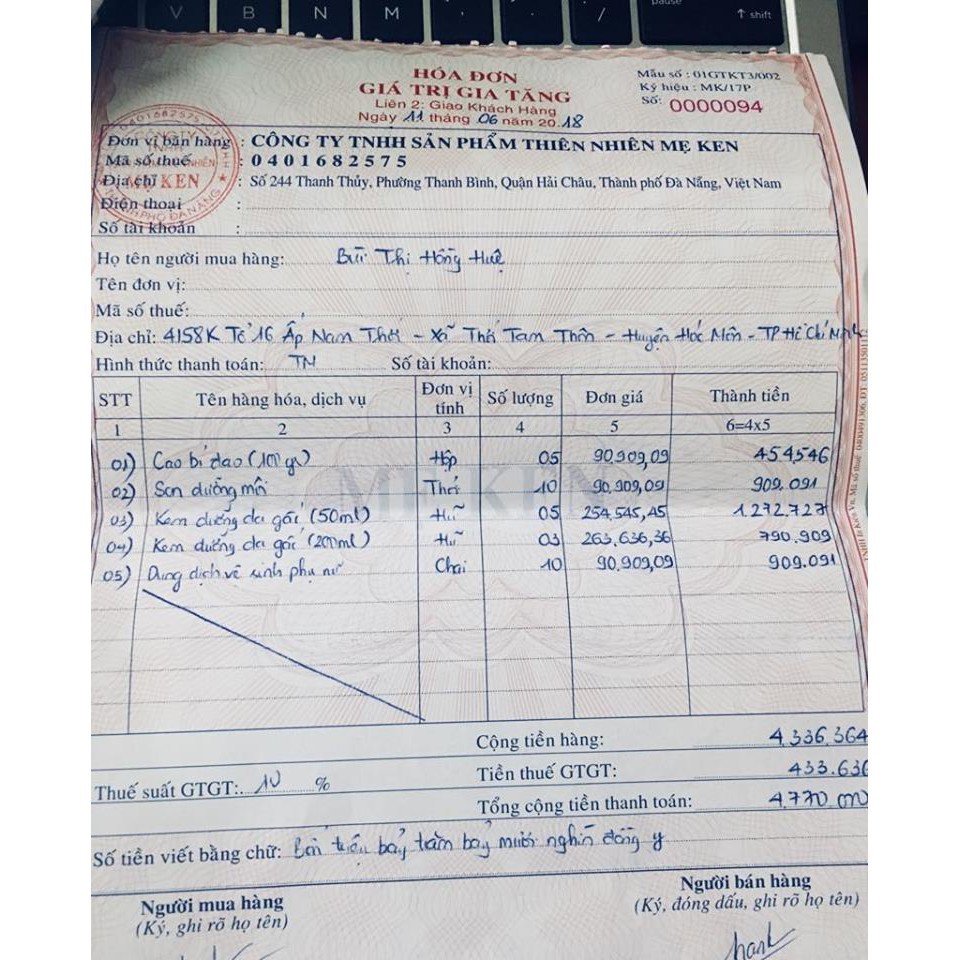 V B N M , . / pause ↑ shift
HÓA ĐƠN
GIÁ TRỊ GIA TĂNG
Liên 2: Giao Khách Hàng
Ngày 11 tháng 06 năm 2018
Mẫu số : 01GTKT3/002
Ký hiệu : MK/17P
Số: 0000094
Đơn vị bán hàng : CÔNG TY TNHH SẢN PHẨM THIÊN NHIÊN MẸ KEN
Mã số thuế : 0401682575
Địa chỉ : Số 244 Thanh Thủy, Phường Thanh Bình, Quận Hải Châu, Thành phố Đà Nẵng, Việt Nam
Điện thoại :
Số tài khoản :
Họ tên người mua hàng: Bùi Thị Hồng Huệ
Tên đơn vị:
Mã số thuế:
Địa chỉ: 4158K Tổ 16 Ấp Nam Thới - Xã Thới Tam Thôn - Huyện Hóc Môn - TP Hồ Chí Minh
Hình thức thanh toán: TM Số tài khoản:
STT Tên hàng hóa, dịch vụ Đơn vị tính Số lượng Đơn giá Thành tiền
1 2 3 4 5 6=4x5
01) Cao bí đao (100gr) Hộp 05 90,909,09 454,546
02) Son dưỡng môi Thỏi 10 90,909,09 909.091
03) Kem dưỡng da gấc (50ml) Hũ 05 254,545,45 1.272.727
04) Kem dưỡng da gấc (200ml) Hũ 03 263,636,36 790.909
05) Dung dịch vệ sinh phụ nữ Chai 10 90,909,09 909.091
MẸ KEN
Cộng tiền hàng: 4.336.364
Thuế suất GTGT: 10 % Tiền thuế GTGT: 433.636
Tổng cộng tiền thanh toán: 4.770.000
Số tiền viết bằng chữ: Bốn triệu bảy trăm bảy mươi nghìn đồng y
Người mua hàng
(Ký, ghi rõ họ tên)
Người bán hàng
(Ký, đóng dấu, ghi rõ họ tên)